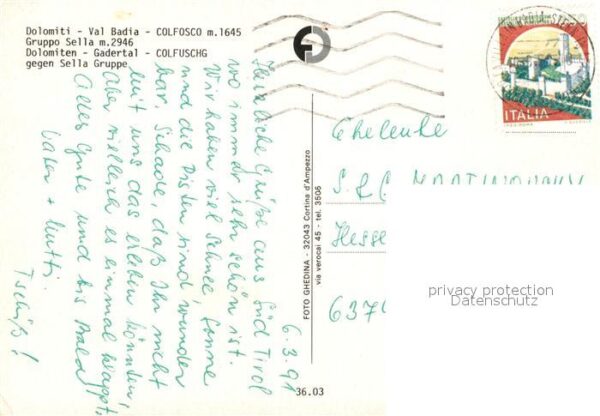 Dolomiti - Val Badia - COLFOSCO m.1645
Gruppo Sella m.2946
Dolomiten - Gadertal - COLFUSCHG
gegen Sella Gruppe
6.3.91
Herzliche Grüße aus Süd Tirol
wo immer sehr schön ist.
Wir haben viel Schnee, Sonne
und die Pisten sind wunder
bar, Schade, daß Ihr nicht
mit uns das erleben könnten
Aber vielleicht es einmal klappt,
Alles Gute und bis Bald
Vater + Mutti.
Tschüß!
FOTO GHEDINA - 32043 Cortina d'Ampezzo
via verocai 45 - tel. 3506
36.03
ITALIA
Eheleute
Hesse
637
privacy protection
Datenschutz